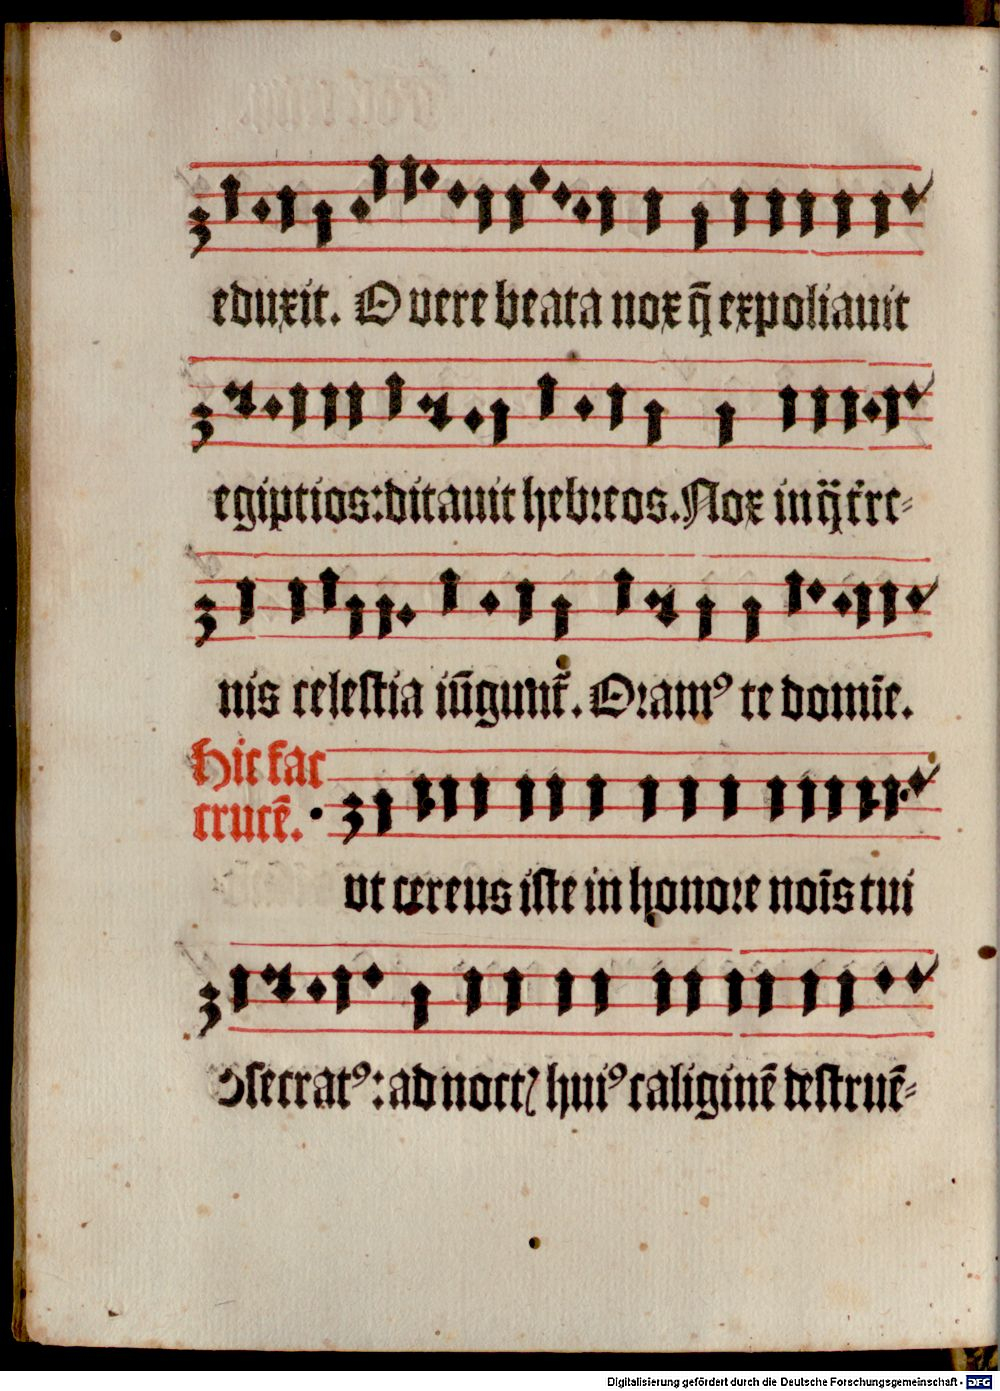 eduxit. O vere beata nox q̄ expoliauit
egiptios: ditauit hebꝛeos. Nox in q̄ tr̄re⸗
nis celestia iūgunt᷑. Oꝛamꝰ te domīe.
Hic fac
crucē.
vt cereus iste in honoꝛe noīs tui
ↄsecratꝰ: ad noctꝭ huiꝰ caliginē destruē⸗
Digitalisierung gefördert durch die Deutsche Forschungsgemeinschaft - DFG